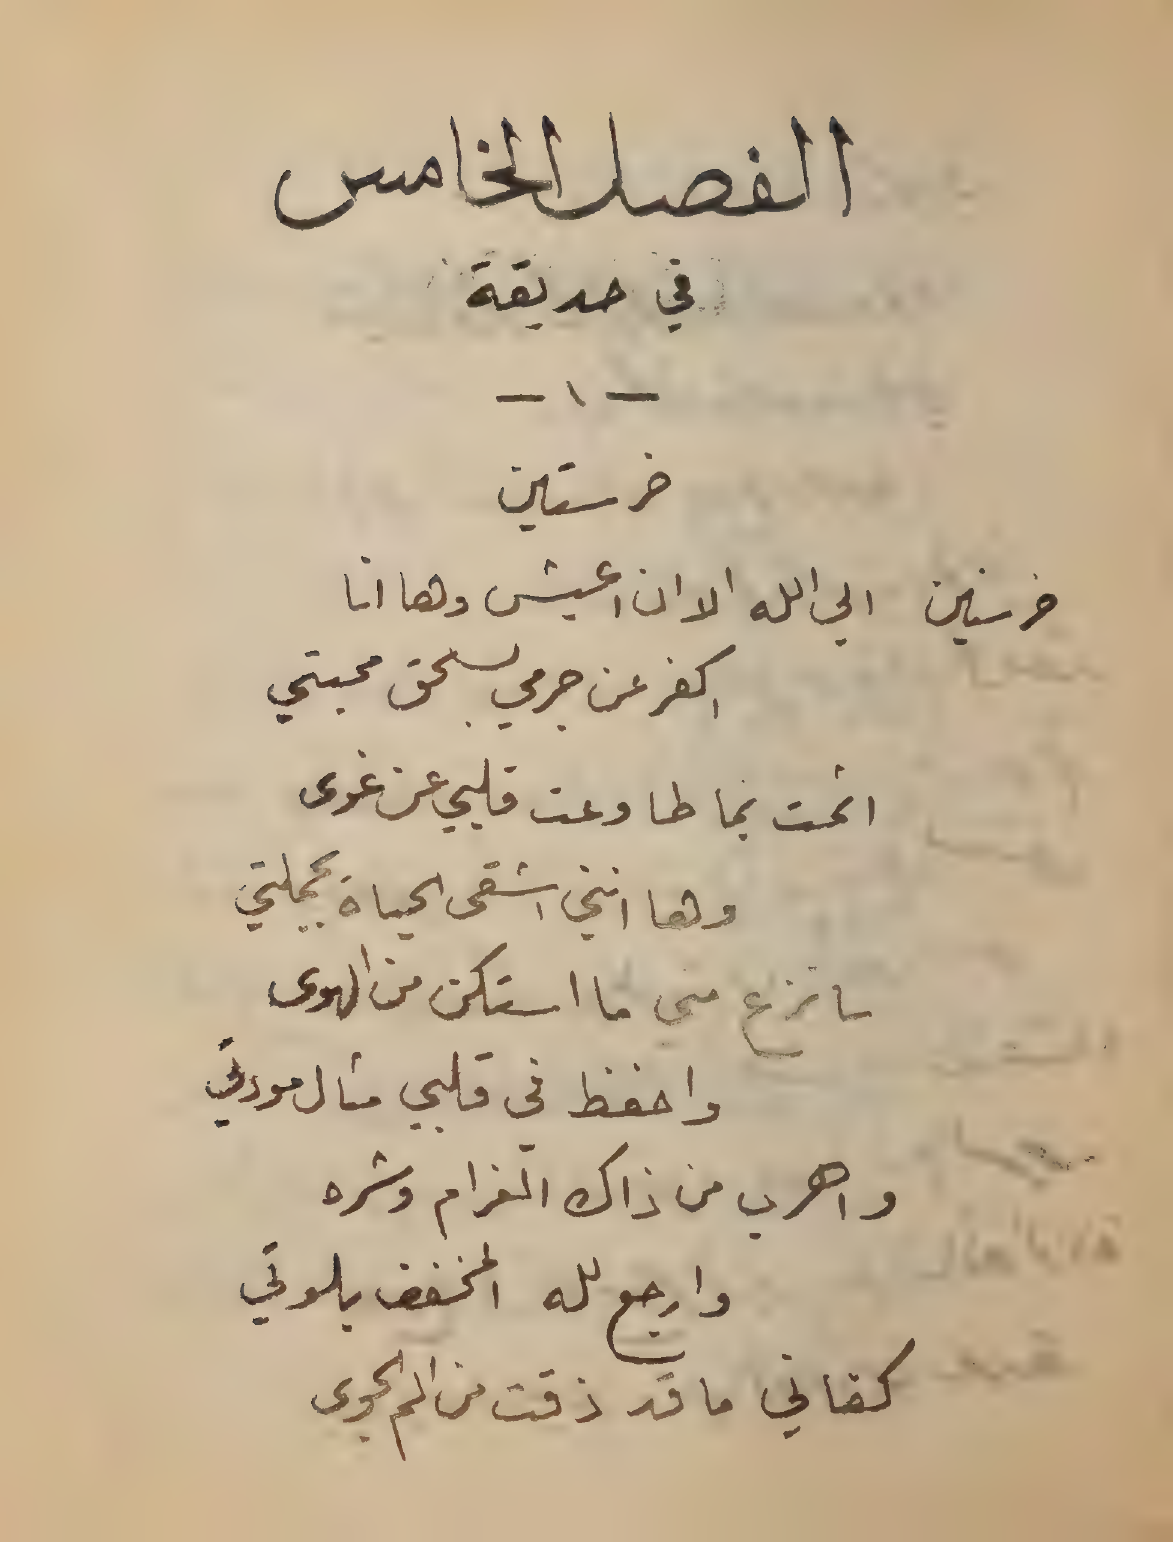 الفصل الخامس
في حديقة
— ١ —
خرستين
خرستين ابي الله الا ان اعيش وها انا
اكفر عن جرمي بسحق محبتي
اثمت بما طاوعت قلبي عن غوى
وها انني اشقى الحياة بجملتي
سانزع مني ما استكن من الهوى
واحفظ في قلبي مثال مودتي
واهرب من ذاك الغرام وشره
وارجع لله المخفف بلوتي
كفاني ما قد ذقت من الم الجوى